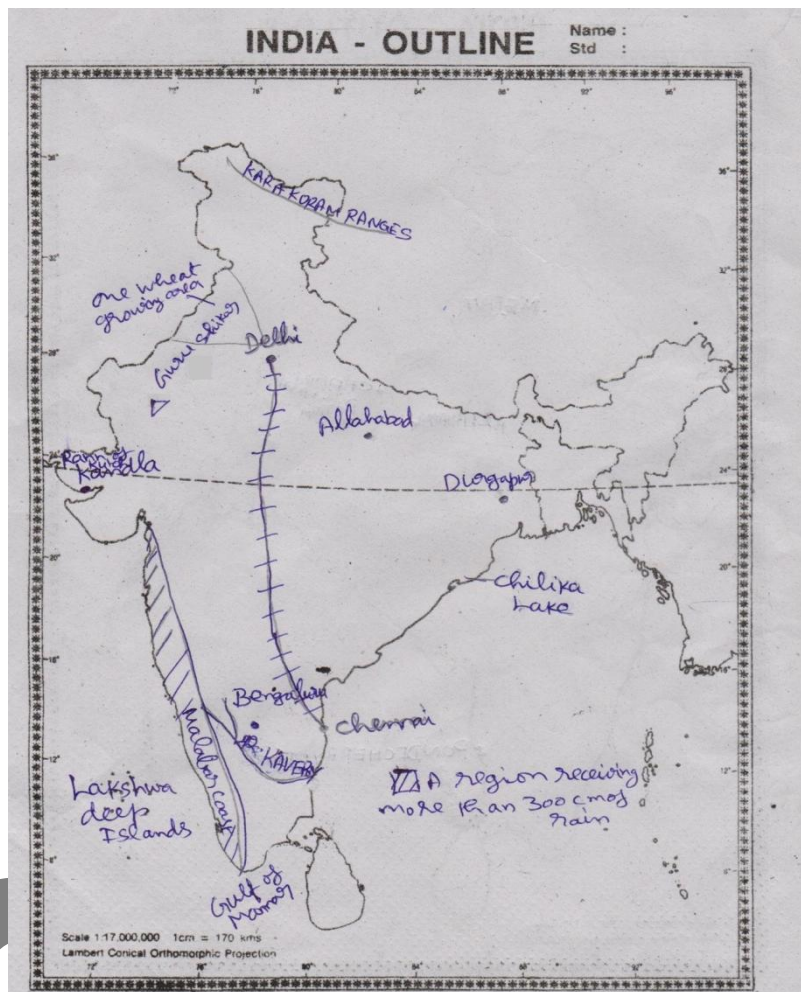 INDIA - OUTLINE
Name :
Std :
KARAKORAM RANGES
one wheat
growing area
Guru Shikar
Delhi
Allahabad
Rann of
Kandla
Durgapur
Chilika
Lake
Bengaluru
Chennai
R. KAVERY
Malabar coast
Lakshwa
deep
Islands
A region receiving
more than 300 cm of
rain
Gulf of
Mannar
Scale 1:17,000,000 1cm = 170 kms
Lambert Conical Orthomorphic Projection